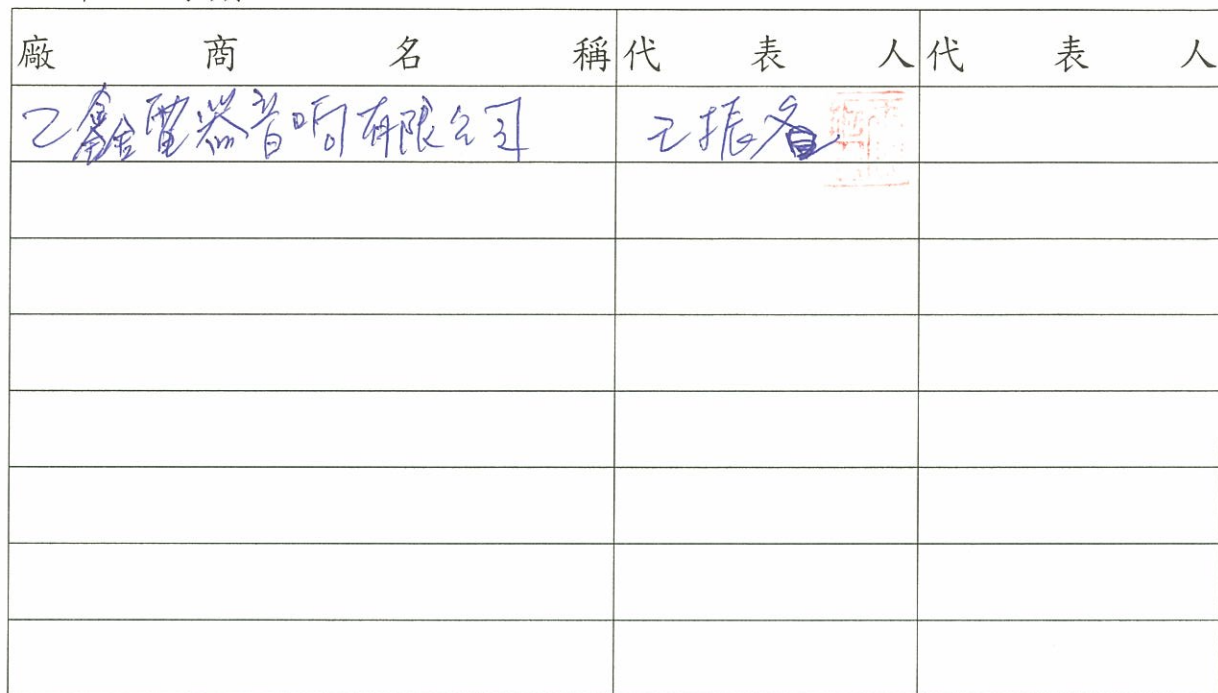 廠商名稱 代表人 代表人
乙鑫電器音响有限公司 振